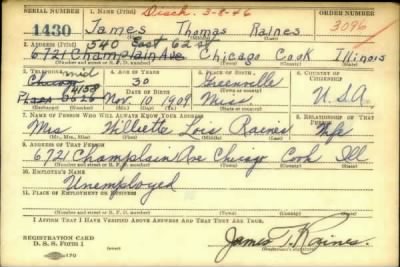 SERIAL NUMBER 1. NAME (Print) Disch 3-8-46 ORDER NUMBER
1430 James Thomas Raines 3096
(First) (Middle) (Last)
2. ADDRESS (Print) 540 East 62 St
6721 Champlain Ave Chicago Cook Illinois
(Number and street or R. F. D. number) (Town) (County) (State)
3. TELEPHONE 4. AGE IN YEARS 5. PLACE OF BIRTH 6. COUNTRY OF CITIZENSHIP
Mid 30 Greenville
4159 DATE OF BIRTH U.S.A
Nov 10, 1909 Miss
(Exchange) (Number) (Mo.) (Day) (Yr.) (State or country)
7. NAME OF PERSON WHO WILL ALWAYS KNOW YOUR ADDRESS 8. RELATIONSHIP OF THAT PERSON
Mrs Lois Raines Wife
(Mr., Mrs., Miss) (First) (Middle) (Last)
9. ADDRESS OF THAT PERSON
6721 Champlain Ave Chicago Cook Ill
(Number and street or R. F. D. number) (Town) (County) (State)
10. EMPLOYER'S NAME
Unemployed
11. PLACE OF EMPLOYMENT OR BUSINESS
(Number and street or R. F. D. number) (Town) (County) (State)
I AFFIRM THAT I HAVE VERIFIED ABOVE ANSWERS AND THAT THEY ARE TRUE.
REGISTRATION CARD
D. S. S. FORM 1
James T. Raines.